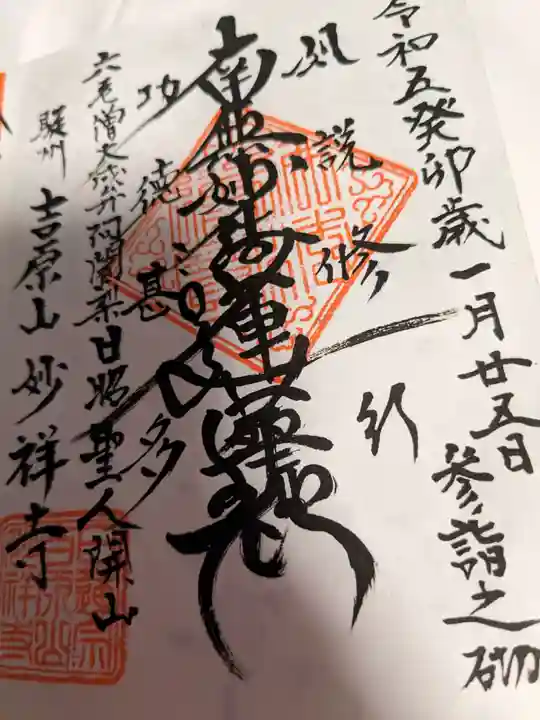 令和五癸卯歳一月廿五日 参詣之砌
如説修行
南無妙法蓮華経
功徳甚多
六老僧大成弁阿闍梨日昭聖人開山
駿州 吉原山 妙祥寺